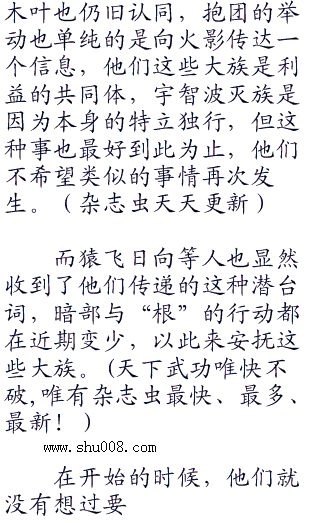 木叶也仍旧认同，抱团的举
动也单纯的是向火影传达一
个信息，他们这些大族是利
益的共同体，宇智波灭族是
因为本身的特立独行，但这
种事也最好到此为止，他们
不希望类似的事情再次发
生。（杂志虫天天更新）
而猿飞日向等人也显然
收到了他们传递的这种潜台
词，暗部与“根”的行动都
在近期变少，以此来安抚这
些大族。(天下武功唯快不
破,唯有杂志虫最快、最多、
最新！)
www.shu008.com
在开始的时候，他们就
没有想过要